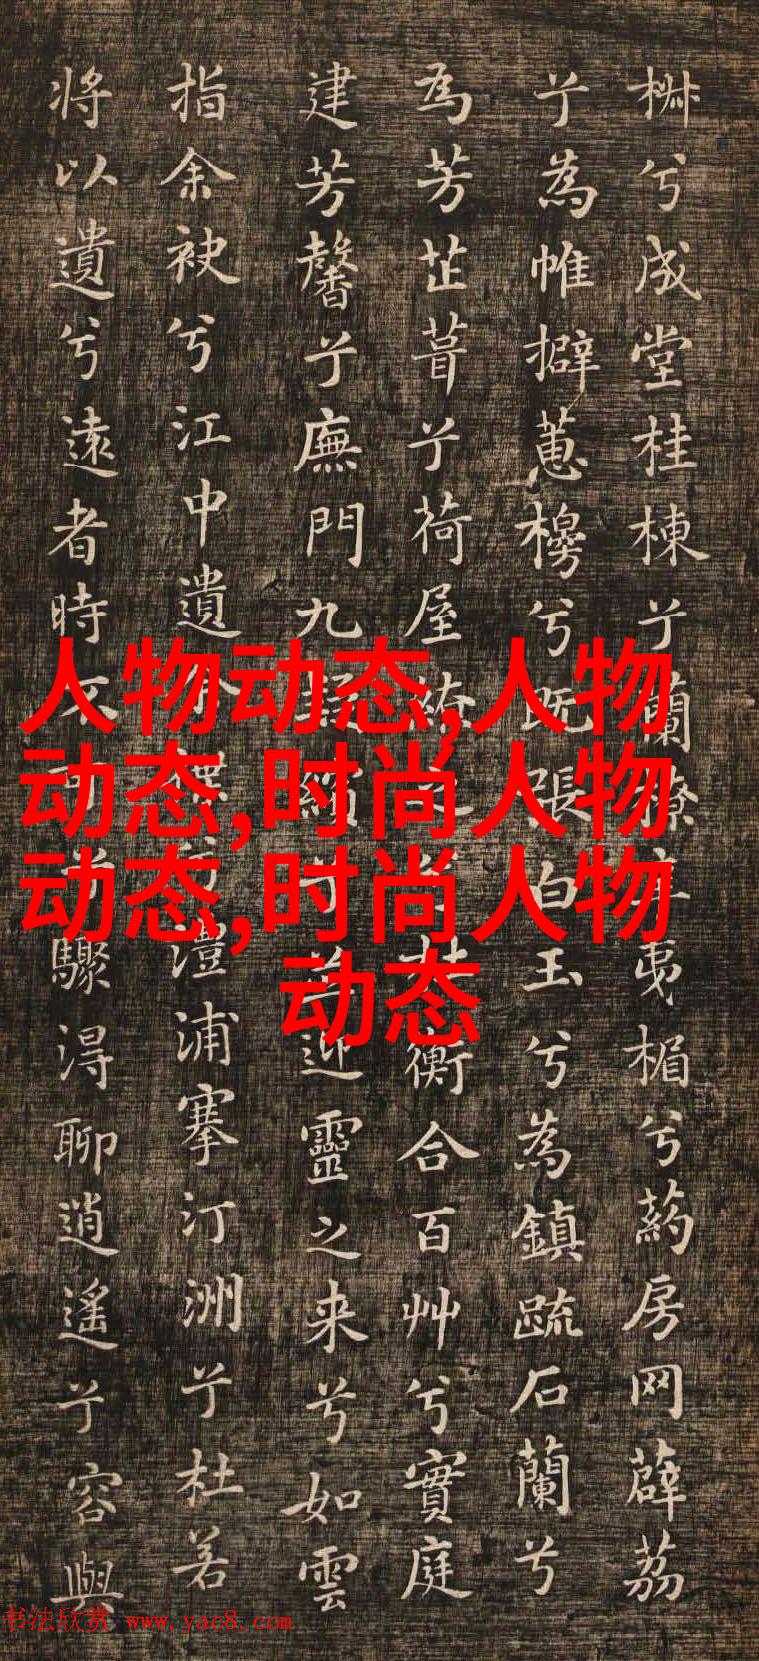 椒兮成堂桂棟兮蘭橑辛夷楣兮葯房网薜荔
兮為帷擗蕙櫋兮既張白玉兮為鎮疏石蘭兮
為芳芷葺兮荷屋繚之兮杜衡合百艸兮實庭
建芳馨兮廡門九嶷繽兮並迎靈之来兮如雲
指余袂兮江中遺余褋兮澧浦搴汀洲兮杜若
将以遺兮遠者時不可兮驟淂聊逍遙兮容與
人物动态,人物
动态,时尚人物
动态,时尚人物
动态
书法欣赏 www.yac8.com